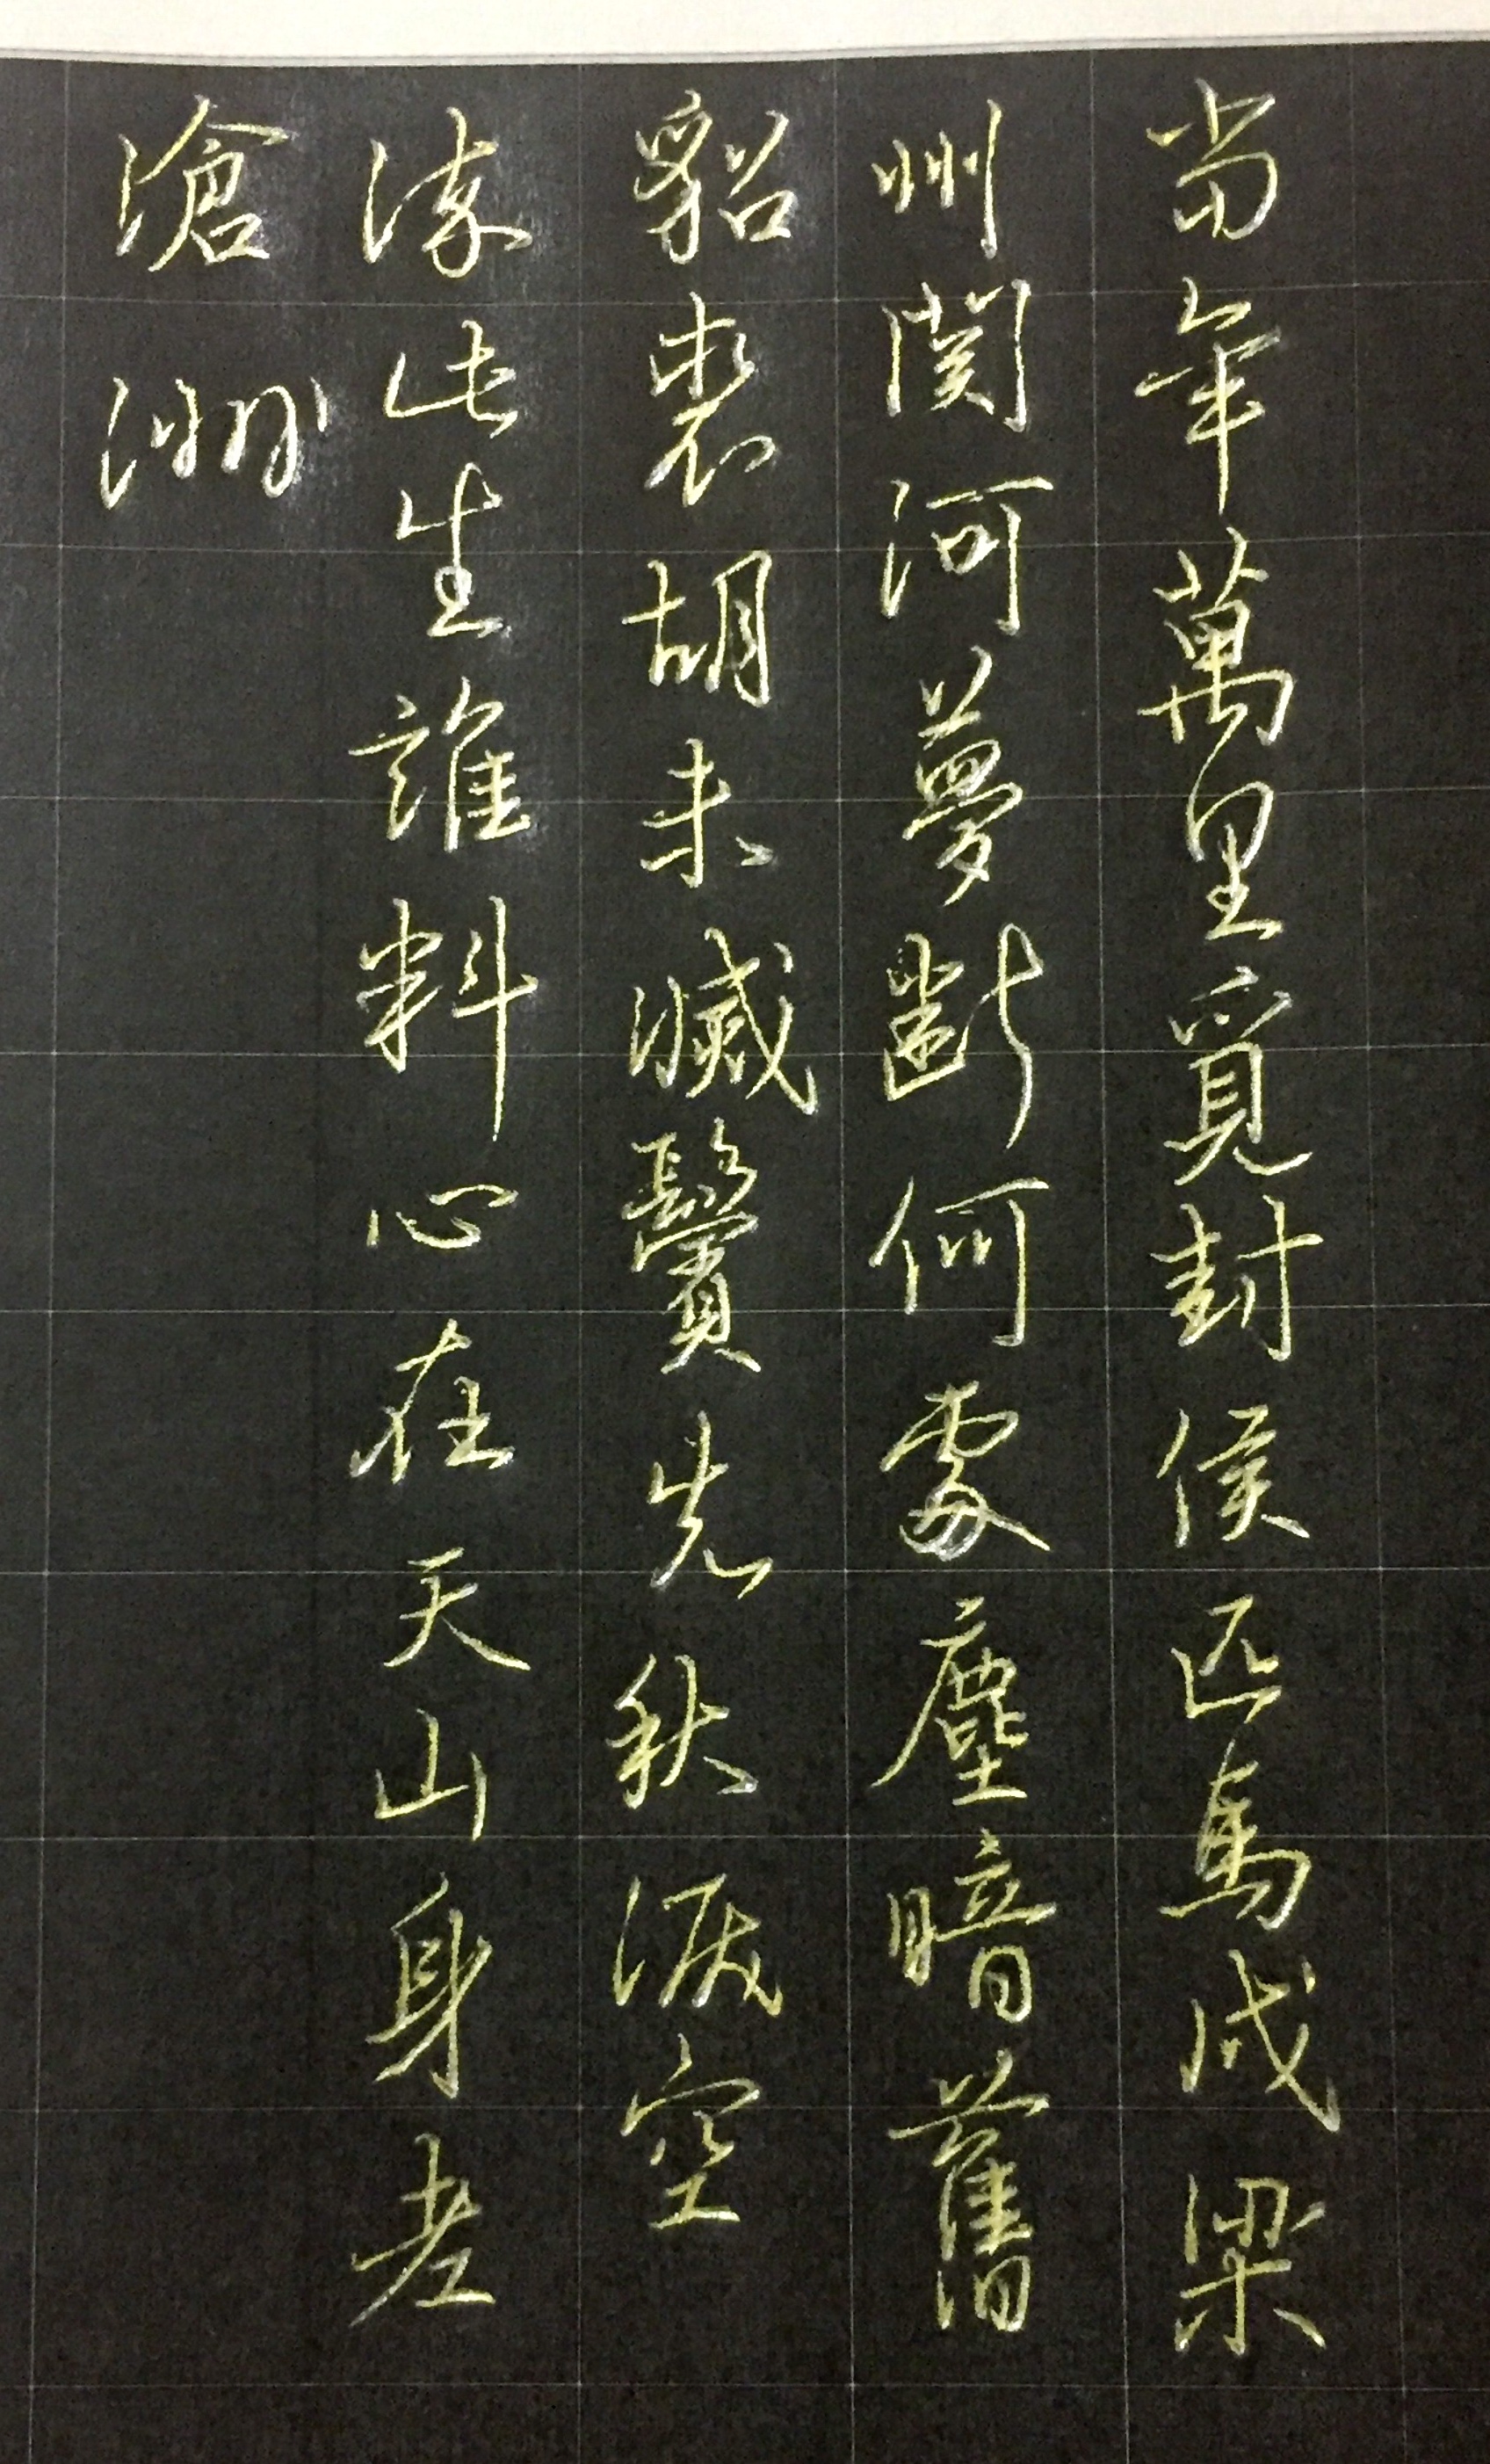 當年萬里覓封侯匹馬戍梁
州關河夢斷何處塵暗舊
貂裘胡未滅鬢先秋淚空
流此生誰料心在天山身老
滄洲